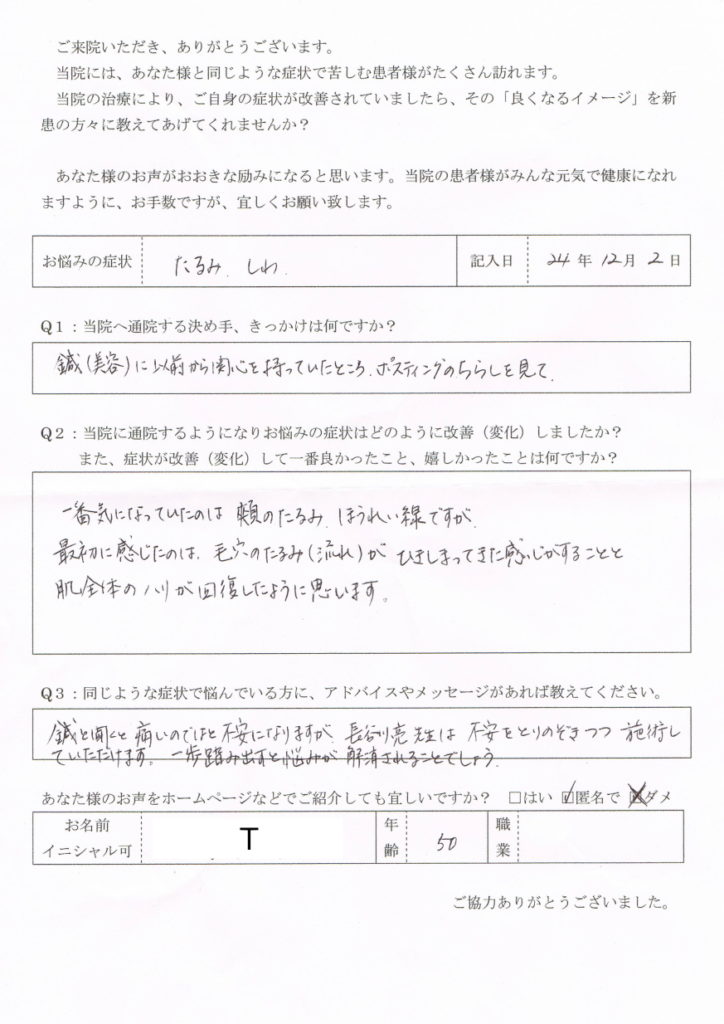 ご来院いただき、ありがとうございます。
当院には、あなた様と同じような症状で苦しむ患者様がたくさん訪れます。
当院の治療により、ご自身の症状が改善されていましたら、その「良くなるイメージ」を新
患の方々に教えてあげてくれませんか？
あなた様のお声がおおきな励みになると思います。当院の患者様がみんな元気で健康になれ
ますように、お手数ですが、宜しくお願い致します。
お悩みの症状 たるみ、しわ 記入日 24 年 12 月 2 日
Q1：当院へ通院する決め手、きっかけは何ですか？
鍼(美容)に以前から関心を持っていたところ、ポスティングのちらしを見て、
Q2：当院に通院するようになりお悩みの症状はどのように改善（変化）しましたか？
また、症状が改善（変化）して一番良かったこと、嬉しかったことは何ですか？
一番気になっていたのは 頬のたるみ、ほうれい線ですが、
最初に感じたのは、毛穴のたるみ(流れ)が ひきしまってきた感じがすることと
肌全体のハリが回復したように思います。
Q3：同じような症状で悩んでいる方に、アドバイスやメッセージがあれば教えてください。
鍼と聞くと痛いのではと不安になりますが 長谷川亮先生は 不安をとりのぞきつつ 施術し
ていただけます。一歩踏み出すと悩みが 解消されることでしょう。
あなた様のお声をホームページなどでご紹介しても宜しいですか？ □はい ☑匿名で ☒ダメ
お名前 イニシャル可 T 年齢 50 職業
ご協力ありがとうございました。